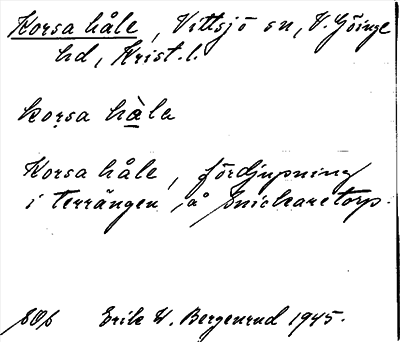 Korsa håle, Vittsjö sn, V. Göinge
hd, Krist. l.
koṛsa hàla
Korsa håle, fördjupning
i terrängen, å Snickaretorp.
Erik W. Bergenrud 1945.